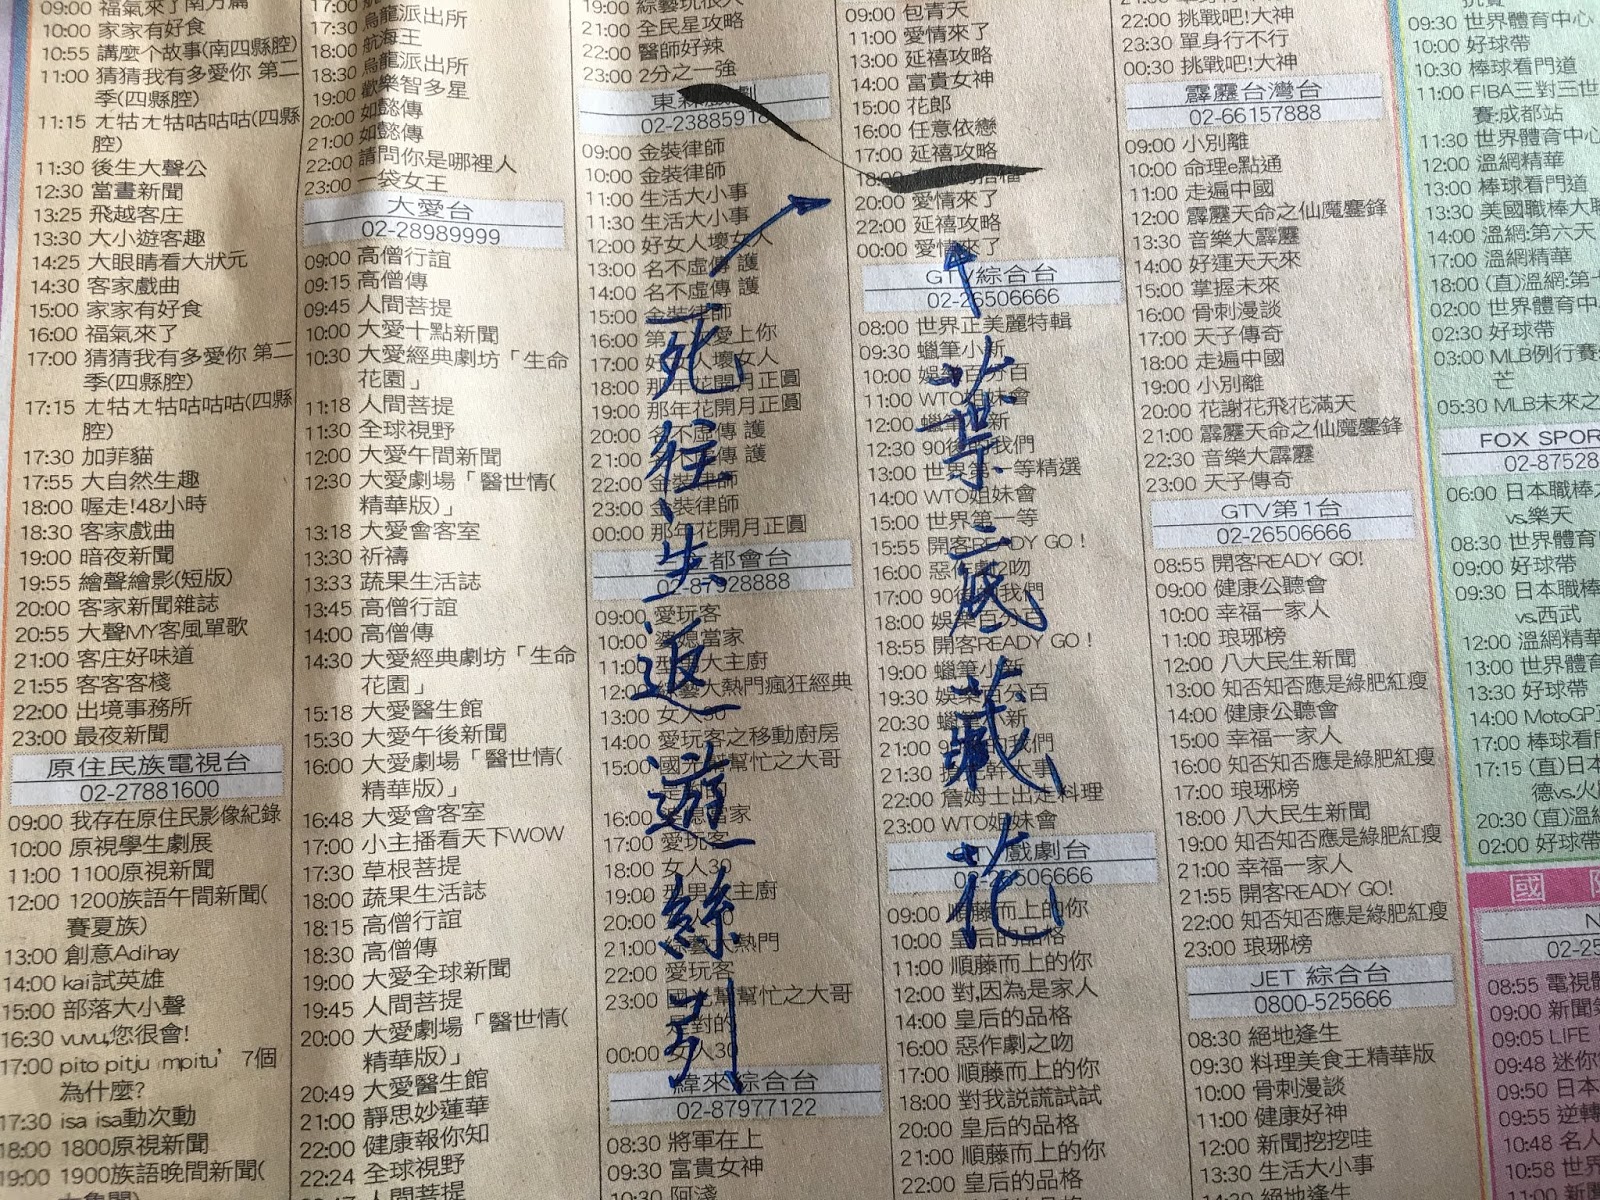 09:00 福氣來了南方篇
10:00 家家有好食
10:55 講麼个故事(南四縣腔)
11:00 猜猜我有多愛你 第二
季(四縣腔)
11:15 ㄤ牯ㄤ牯咕咕咕(四縣
腔)
11:30 後生大聲公
12:30 當晝新聞
13:25 飛越客庄
13:30 大小遊客趣
14:25 大眼睛看大狀元
14:30 客家戲曲
15:00 家家有好食
16:00 福氣來了
17:00 猜猜我有多愛你 第二
季(四縣腔)
17:15 ㄤ牯ㄤ牯咕咕咕(四縣
腔)
17:30 加菲貓
17:55 大自然生趣
18:00 喔走!48小時
18:30 客家戲曲
19:00 暗夜新聞
19:55 繪聲繪影(短版)
20:00 客家新聞雜誌
20:55 大聲MY客風單歌
21:00 客庄好味道
21:55 客客客棧
22:00 出境事務所
23:00 最夜新聞
原住民族電視台
02-27881600
09:00 我存在原住民影像紀錄
10:00 原視學生劇展
11:00 1100原視新聞
12:00 1200族語午間新聞(
賽夏族)
13:00 創意Adihay
14:00 kai試英雄
15:00 部落大小聲
16:30 vuvu,您很會!
17:00 pito pitju mpitu' 7個
為什麼?
17:30 isa isa動次動
18:00 1800原視新聞
19:00 1900族語晚間新聞(
17:30 烏龍派出所
18:00 航海王
18:30 烏龍派出所
19:00 歡樂智多星
20:00 如懿傳
21:00 如懿傳
22:00 請問你是哪裡人
23:00 一袋女王
大愛台
02-28989999
09:00 高僧行誼
09:15 高僧傳
09:45 人間菩提
10:00 大愛十點新聞
10:30 大愛經典劇坊「生命
花園」
11:18 人間菩提
11:30 全球視野
12:00 大愛午間新聞
12:30 大愛劇場「醫世情(
精華版)」
13:18 大愛會客室
13:30 祈禱
13:33 蔬果生活誌
13:45 高僧行誼
14:00 高僧傳
14:30 大愛經典劇坊「生命
花園」
15:18 大愛醫生館
15:30 大愛午後新聞
16:00 大愛劇場「醫世情(
精華版)」
16:48 大愛會客室
17:00 小主播看天下WOW
17:30 草根菩提
18:00 蔬果生活誌
18:15 高僧行誼
18:30 高僧傳
19:00 大愛全球新聞
19:45 人間菩提
20:00 大愛劇場「醫世情(
精華版)」
20:49 大愛醫生館
21:00 靜思妙蓮華
22:00 健康報你知
22:24 全球視野
人間菩提
19:00 綜藝玩很大
21:00 全民星攻略
22:00 醫師好辣
23:00 2分之一強
東森戲劇
02-23885918
09:00 金裝律師
10:00 金裝律師
11:00 生活大小事
11:30 生活大小事
12:00 好女人壞女人
13:00 名不虛傳 護
14:00 名不虛傳 護
15:00 金裝律師
16:00 第二次愛上你
17:00 好女人壞女人
18:00 那年花開月正圓
19:00 那年花開月正圓
20:00 名不虛傳 護
21:00 名不虛傳 護
22:00 金裝律師
23:00 金裝律師
00:00 那年花開月正圓
都會台
02-87928888
09:00 愛玩客
10:00 婆媳當家
11:00 型男大主廚
12:00 綜藝大熱門瘋狂經典
13:00 女人30
14:00 愛玩客之移動廚房
15:00 國光幫幫忙之大哥
16:00 婆媳當家
17:00 愛玩客
18:00 女人30
19:00 型男大主廚
20:00 女人30
21:00 綜藝大熱門
22:00 愛玩客
23:00 國光幫幫忙之大哥
是對的
00:00 女人30
緯來綜合台
02-87977122
08:30 將軍在上
09:30 富貴女神
10:30 阿淺
死往生返遊絲引
09:00 包青天
11:00 愛情來了
13:00 延禧攻略
14:00 富貴女神
15:00 花郎
16:00 任意依戀
17:00 延禧攻略
18:00
20:00 愛情來了
22:00 延禧攻略
00:00 愛情來了
GTV綜合台
02-26506666
08:00 世界正美麗特輯
09:30 蠟筆小新
10:00 娛樂百分百
11:00 WTO姐妹會
12:00 蠟筆小新
12:30 90後的我們
13:00 世界第一等精選
14:00 WTO姐妹會
15:00 世界第一等
15:55 開客READY GO！
16:00 惡作劇之吻
17:00 90後的我們
18:00 娛樂百分百
18:55 開客READY GO！
19:00 蠟筆小新
19:30 娛樂百分百
20:30 蠟筆小新
21:00 90後的我們
21:30
22:00 詹姆士出走料理
23:00 WTO姐妹會
GTV戲劇台
02-26506666
09:00 順藤而上的你
10:00 皇后的品格
11:00 順藤而上的你
12:00 對,因為是家人
14:00 皇后的品格
16:00 惡作劇之吻
17:00 順藤而上的你
18:00 對我説謊試試
20:00 皇后的品格
21:00 順藤而上的你
22:00 皇后的品格
葉底藏花
22:00 挑戰吧!大神
23:30 單身行不行
00:30 挑戰吧!大神
霹靂台灣台
02-66157888
09:00 小別離
10:00 命理e點通
11:00 走遍中國
12:00 霹靂天命之仙魔鏖鋒
13:30 音樂大霹靂
14:00 好運天天來
15:00 掌握未來
16:00 骨刺漫談
17:00 天子傳奇
18:00 走遍中國
19:00 小別離
20:00 花謝花飛花滿天
21:00 霹靂天命之仙魔鏖鋒
22:30 音樂大霹靂
23:00 天子傳奇
GTV第1台
02-26506666
08:55 開客READY GO!
09:00 健康公聽會
10:00 幸福一家人
11:00 琅琊榜
12:00 八大民生新聞
13:00 知否知否應是綠肥紅瘦
14:00 健康公聽會
15:00 幸福一家人
16:00 知否知否應是綠肥紅瘦
17:00 琅琊榜
18:00 八大民生新聞
19:00 知否知否應是綠肥紅瘦
21:00 幸福一家人
21:55 開客READY GO!
22:00 知否知否應是綠肥紅瘦
23:00 琅琊榜
JET 綜合台
0800-525666
08:30 絕地逢生
09:30 料理美食王精華版
10:00 骨刺漫談
11:00 健康好神
12:00 新聞挖挖哇
13:30 生活大小事
絕地逢生
09:30 世界體育中心
10:00 好球帶
10:30 棒球看門道
11:00 FIBA三對三世
賽:成都站
11:30 世界體育中心
12:00 溫網精華
13:00 棒球看門道
13:30 美國職棒大
14:00 溫網:第六天
17:00 溫網精華
18:00 (直)溫網:第
02:00 世界體育中
02:30 好球帶
03:00 MLB例行賽
芒
05:30 MLB未來之
FOX SPOR
02-87528
06:00 日本職棒
vs.樂天
08:30 世界體育
09:00 好球帶
09:30 日本職棒
vs.西武
12:00 溫網精華
13:00 世界體育
13:30 好球帶
14:00 MotoGP
17:00 棒球看門
17:15 (直)日本
德vs.火
20:30 (直)溫
02:00 好球帶
國
02-25
08:55 電視
09:00 新聞
09:05 LIFE
09:48 迷你
09:50 日本
09:55 逆轉
10:48 名人
10:58 世界